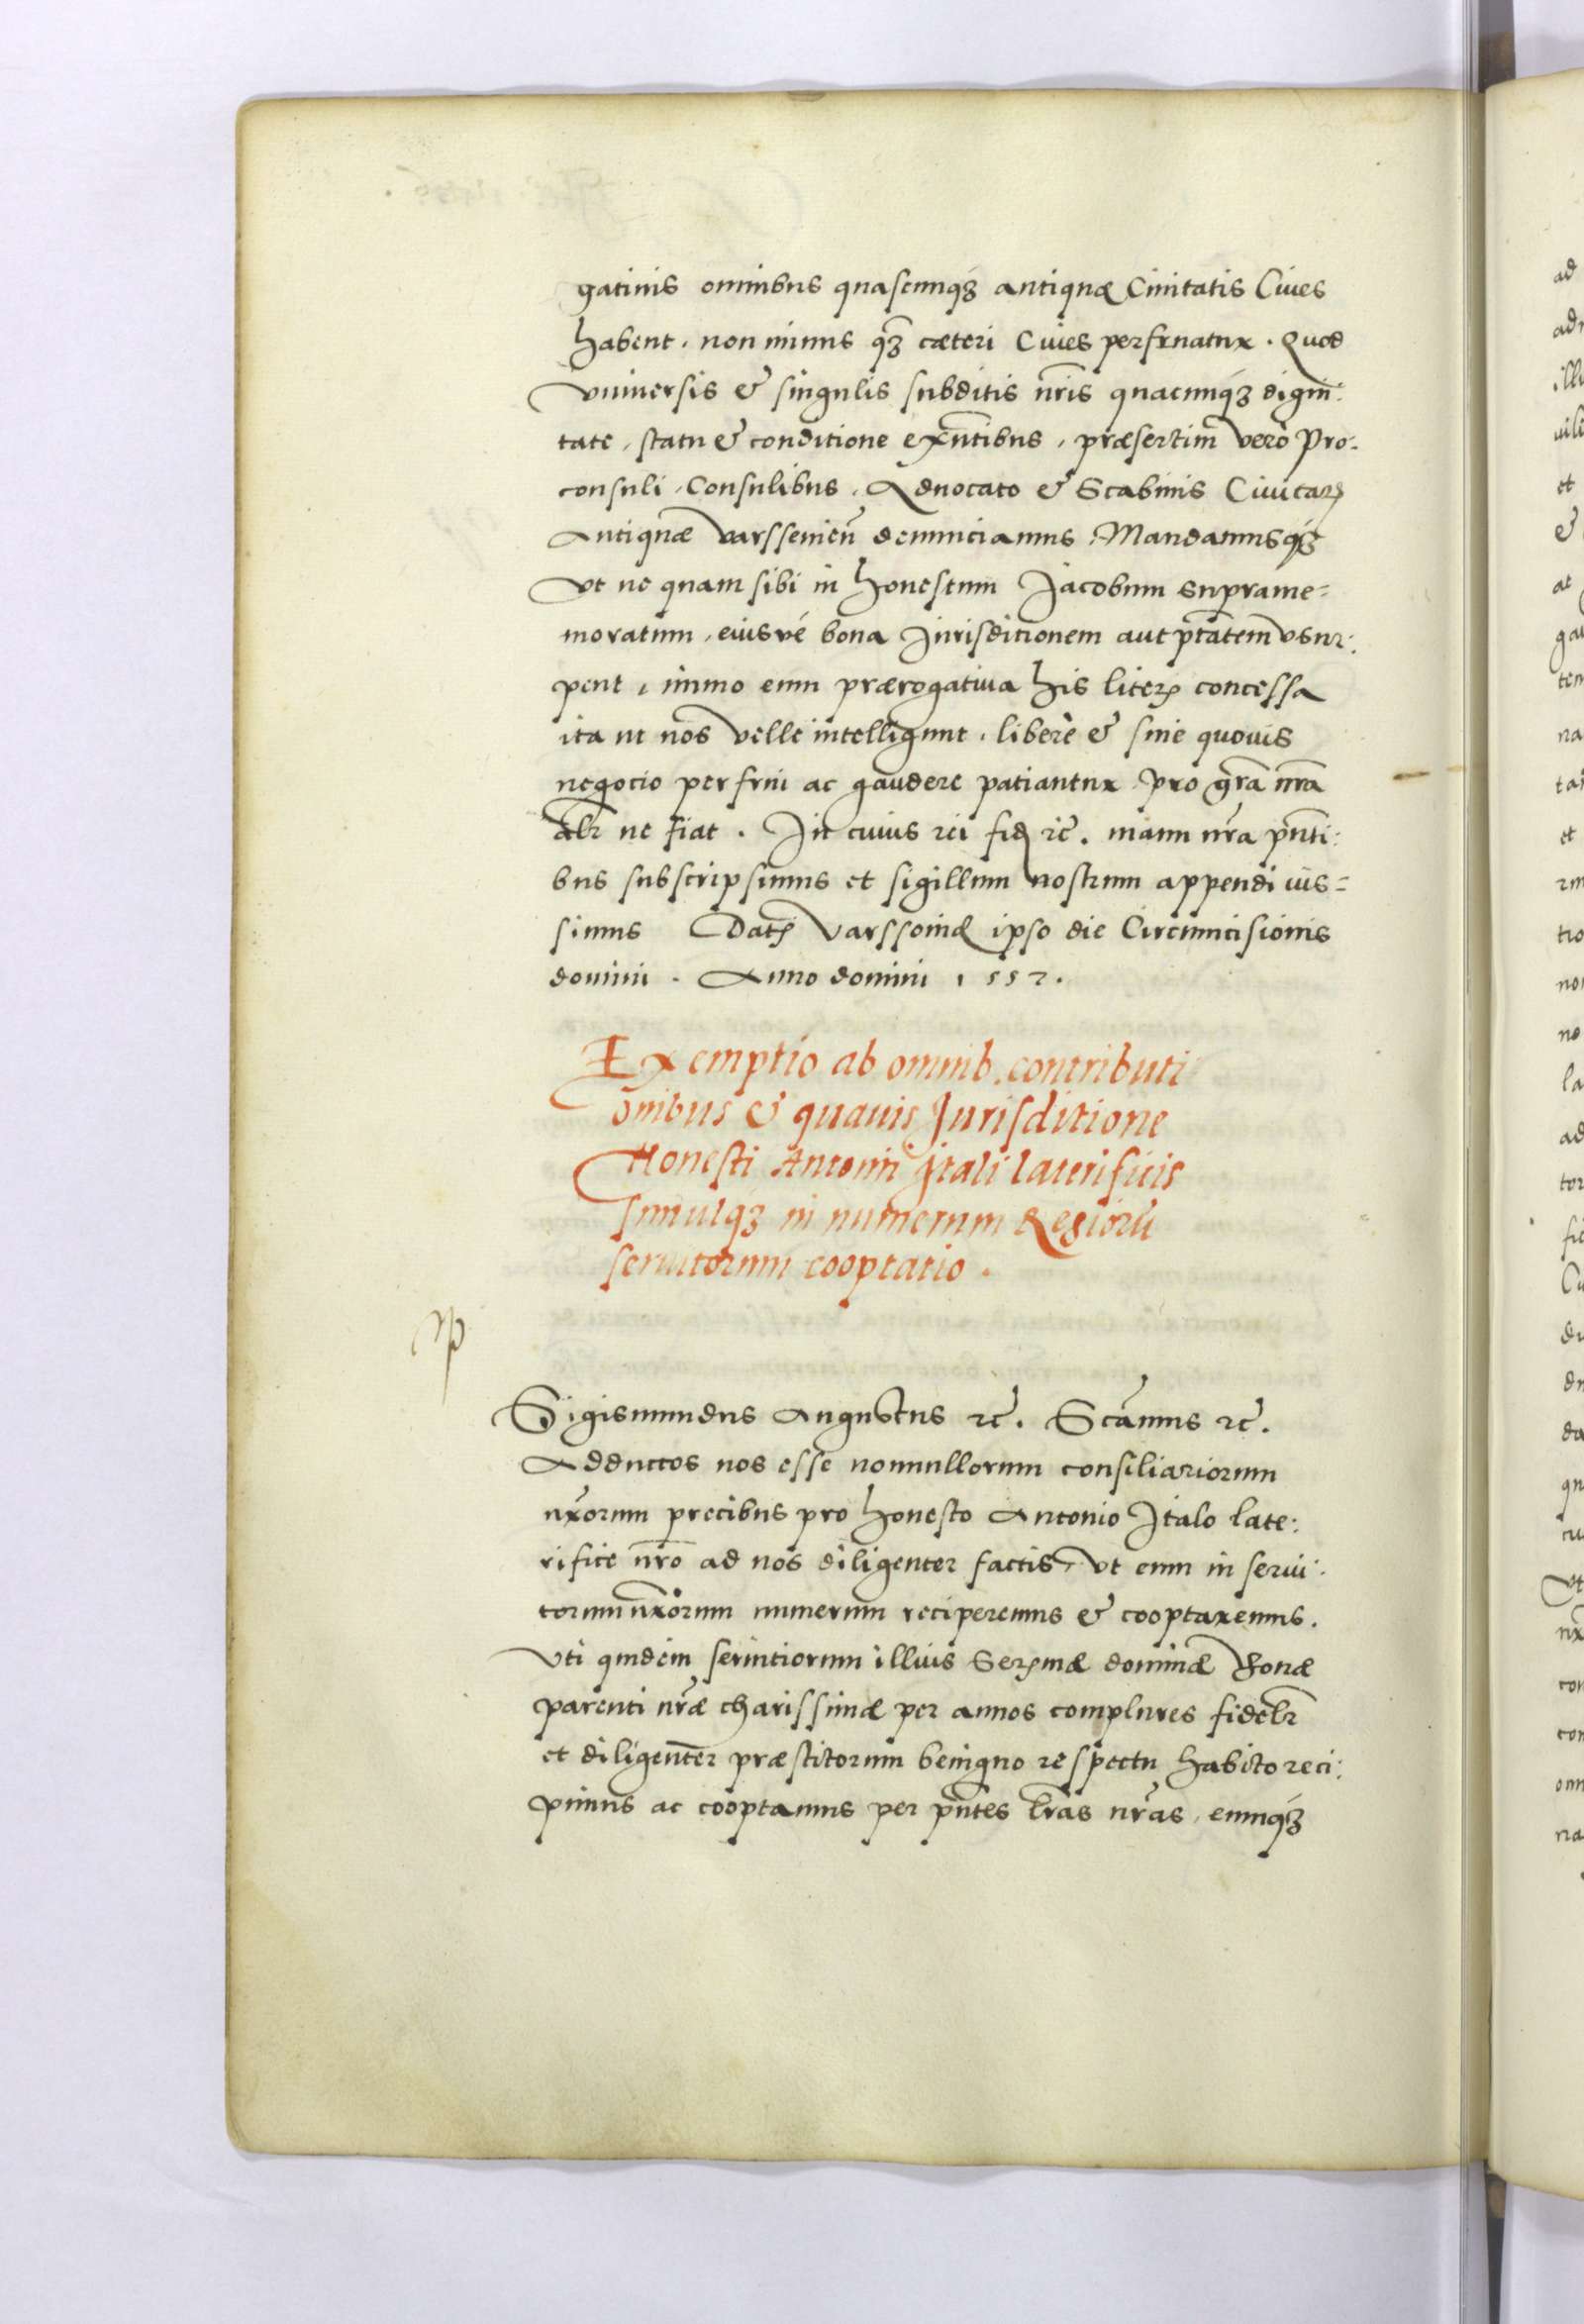 gatiuis omnibus quascunq3 antiquæ Ciuitatis Ciues
habent, non minus q̃3 cæteri Ciues perfruatur. Quod
vniuersis & singulis subditis nr̃is quacunq3 digni:
tate, statu & conditione exñtibus, præsertim vero Pro:
consuli, Consulibus, Aduocato & Scabinis Ciuitaꝝ
Antiquæ varsseuieñ denunciamus, Mandamusq3
Vt ne quam sibi in honestum Jacobum suprame=
moratum, eiusvé bona Jurisditionem aut ptãtem vsur:
pent, immo eum prærogatiua his literꝭ concessa
ita ut nos velle intelligunt, liberè & sine quouis
negocio perfrui ac gaudere patiantur, pro grã nrã
alr̃ ne fiat. In cuius rei fidẽ rc̃. manu nr̃a pñti:
bus subscripsimus et sigillum nostrum appendi ius=
simus Datꝭ Varssouiæ ipso die Circumcisionis
domini. Anno domini 1552.
Exemptio ab omnib. contributi
onibus & quauis Jurisditione
Honesti Antonii Jtali laterificis
simulq3 in numerum Regiorũ
seruitorum cooptatio.
Sigismundus Augustus rc̃. Scãmus rc̃.
Adductos nos esse nonnullorum consiliariorum
nr̃orum precibus pro honesto Antonio Jtalo late:
rifice nr̃o ad nos diligenter factis, vt eum in serui:
torum nr̃orum numerum reciperemus & cooptaremus.
Vti quidem seruitiorum illius Serꝭmæ dominæ Bonæ
parenti nr̃æ charissimæ per annos complures fidelr̃
et diligenter præstitorum benigno respectu habito reci:
pimus ac cooptamus per pñtes lr̃as nr̃as, eumq3